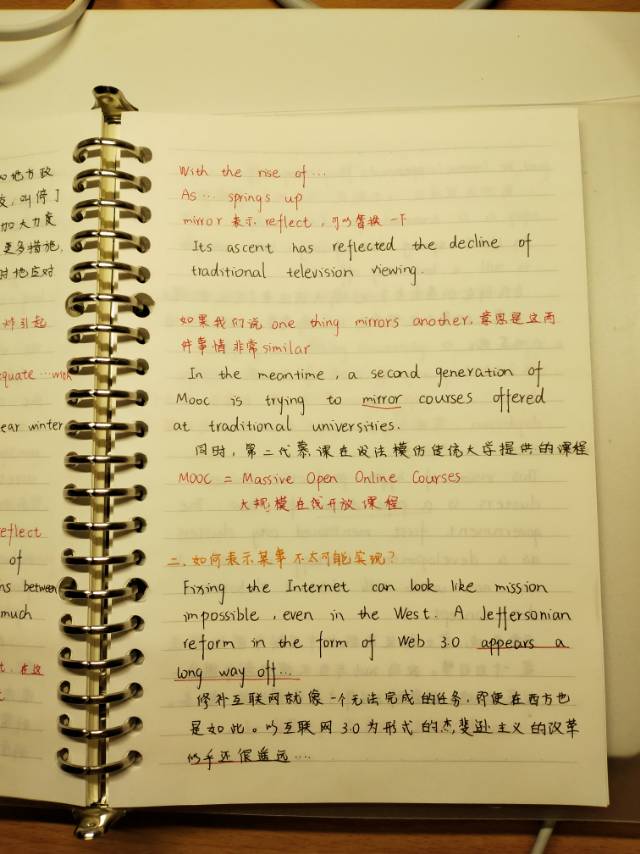 和地方政
叫停了
加大力度
更多措施,
时地应对
炸引起
equate …with
ear winter
eflect
of
ns between
much
t, 在这
With the rise of…
As … springs up
mirror 表示 reflect, 可以替换一下
Its ascent has reflected the decline of
traditional television viewing.
如果我们说 one thing mirrors another, 意思是这两
件事情非常similar
In the meantime, a second generation of
Mooc is trying to mirror courses offered
at traditional universities.
同时, 第二代慕课在设法模仿传统大学提供的课程
MOOC = Massive Open Online Courses
大规模在线开放课程
二、如何表示某事不太可能实现?
Fixing the Internet can look like mission
impossible, even in the West. A Jeffersonian
reform in the form of Web 3.0 appears a
long way off…
修补互联网就像一个无法完成的任务, 即便在西方也
是如此。以互联网3.0为形式的杰斐逊主义的改革
似乎还很遥远…